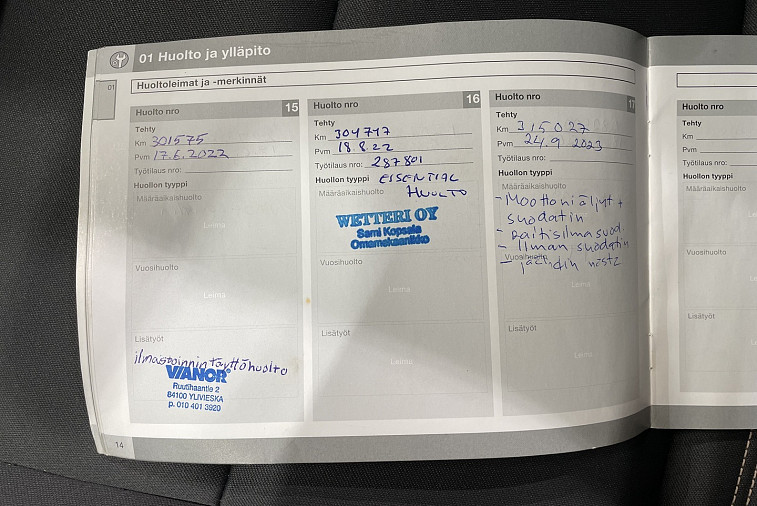 01 Huolto ja ylläpito
01
Huoltoleimat ja -merkinnät
Huolto nro 15
Tehty
Km 301575
Pvm 17.6.2022
Työtilaus nro:
Huollon tyyppi
Määräaikaishuolto
Leima
Vuosihuolto
Leima
Lisätyöt
ilmastoinnin täyttöhuolto
VIANOR
Ruutihaantie 2
84100 YLIVIESKA
p. 010 401 3920
14
Huolto nro 16
Tehty
Km 304717
Pvm 18.8.22
Työtilaus nro: 287801
Huollon tyyppi EISENTIAL
HUOLTO
Määräaikaishuolto
WETTERI OY
Sami Kopsala
Omamekaanikko
Vuosihuolto
Leima
Lisätyöt
Leima
Huolto nro 17
Tehty
Km 315027
Pvm 24.9 2023
Työtilaus nro:
Huollon tyyppi
Määräaikaishuolto
- Moottoriäljyt +
suodatin
- raitisilmasuod.
- Ilman suodatin
Vuosihuolto
- jäähdin nestz
Leima
Lisätyöt
Leima
Huolto nro
Tehty
Km
Pvm
Työtilaus nro:
Huollon tyyppi
Määräaikaishuolto
Vuosihuolto
Lisätyöt